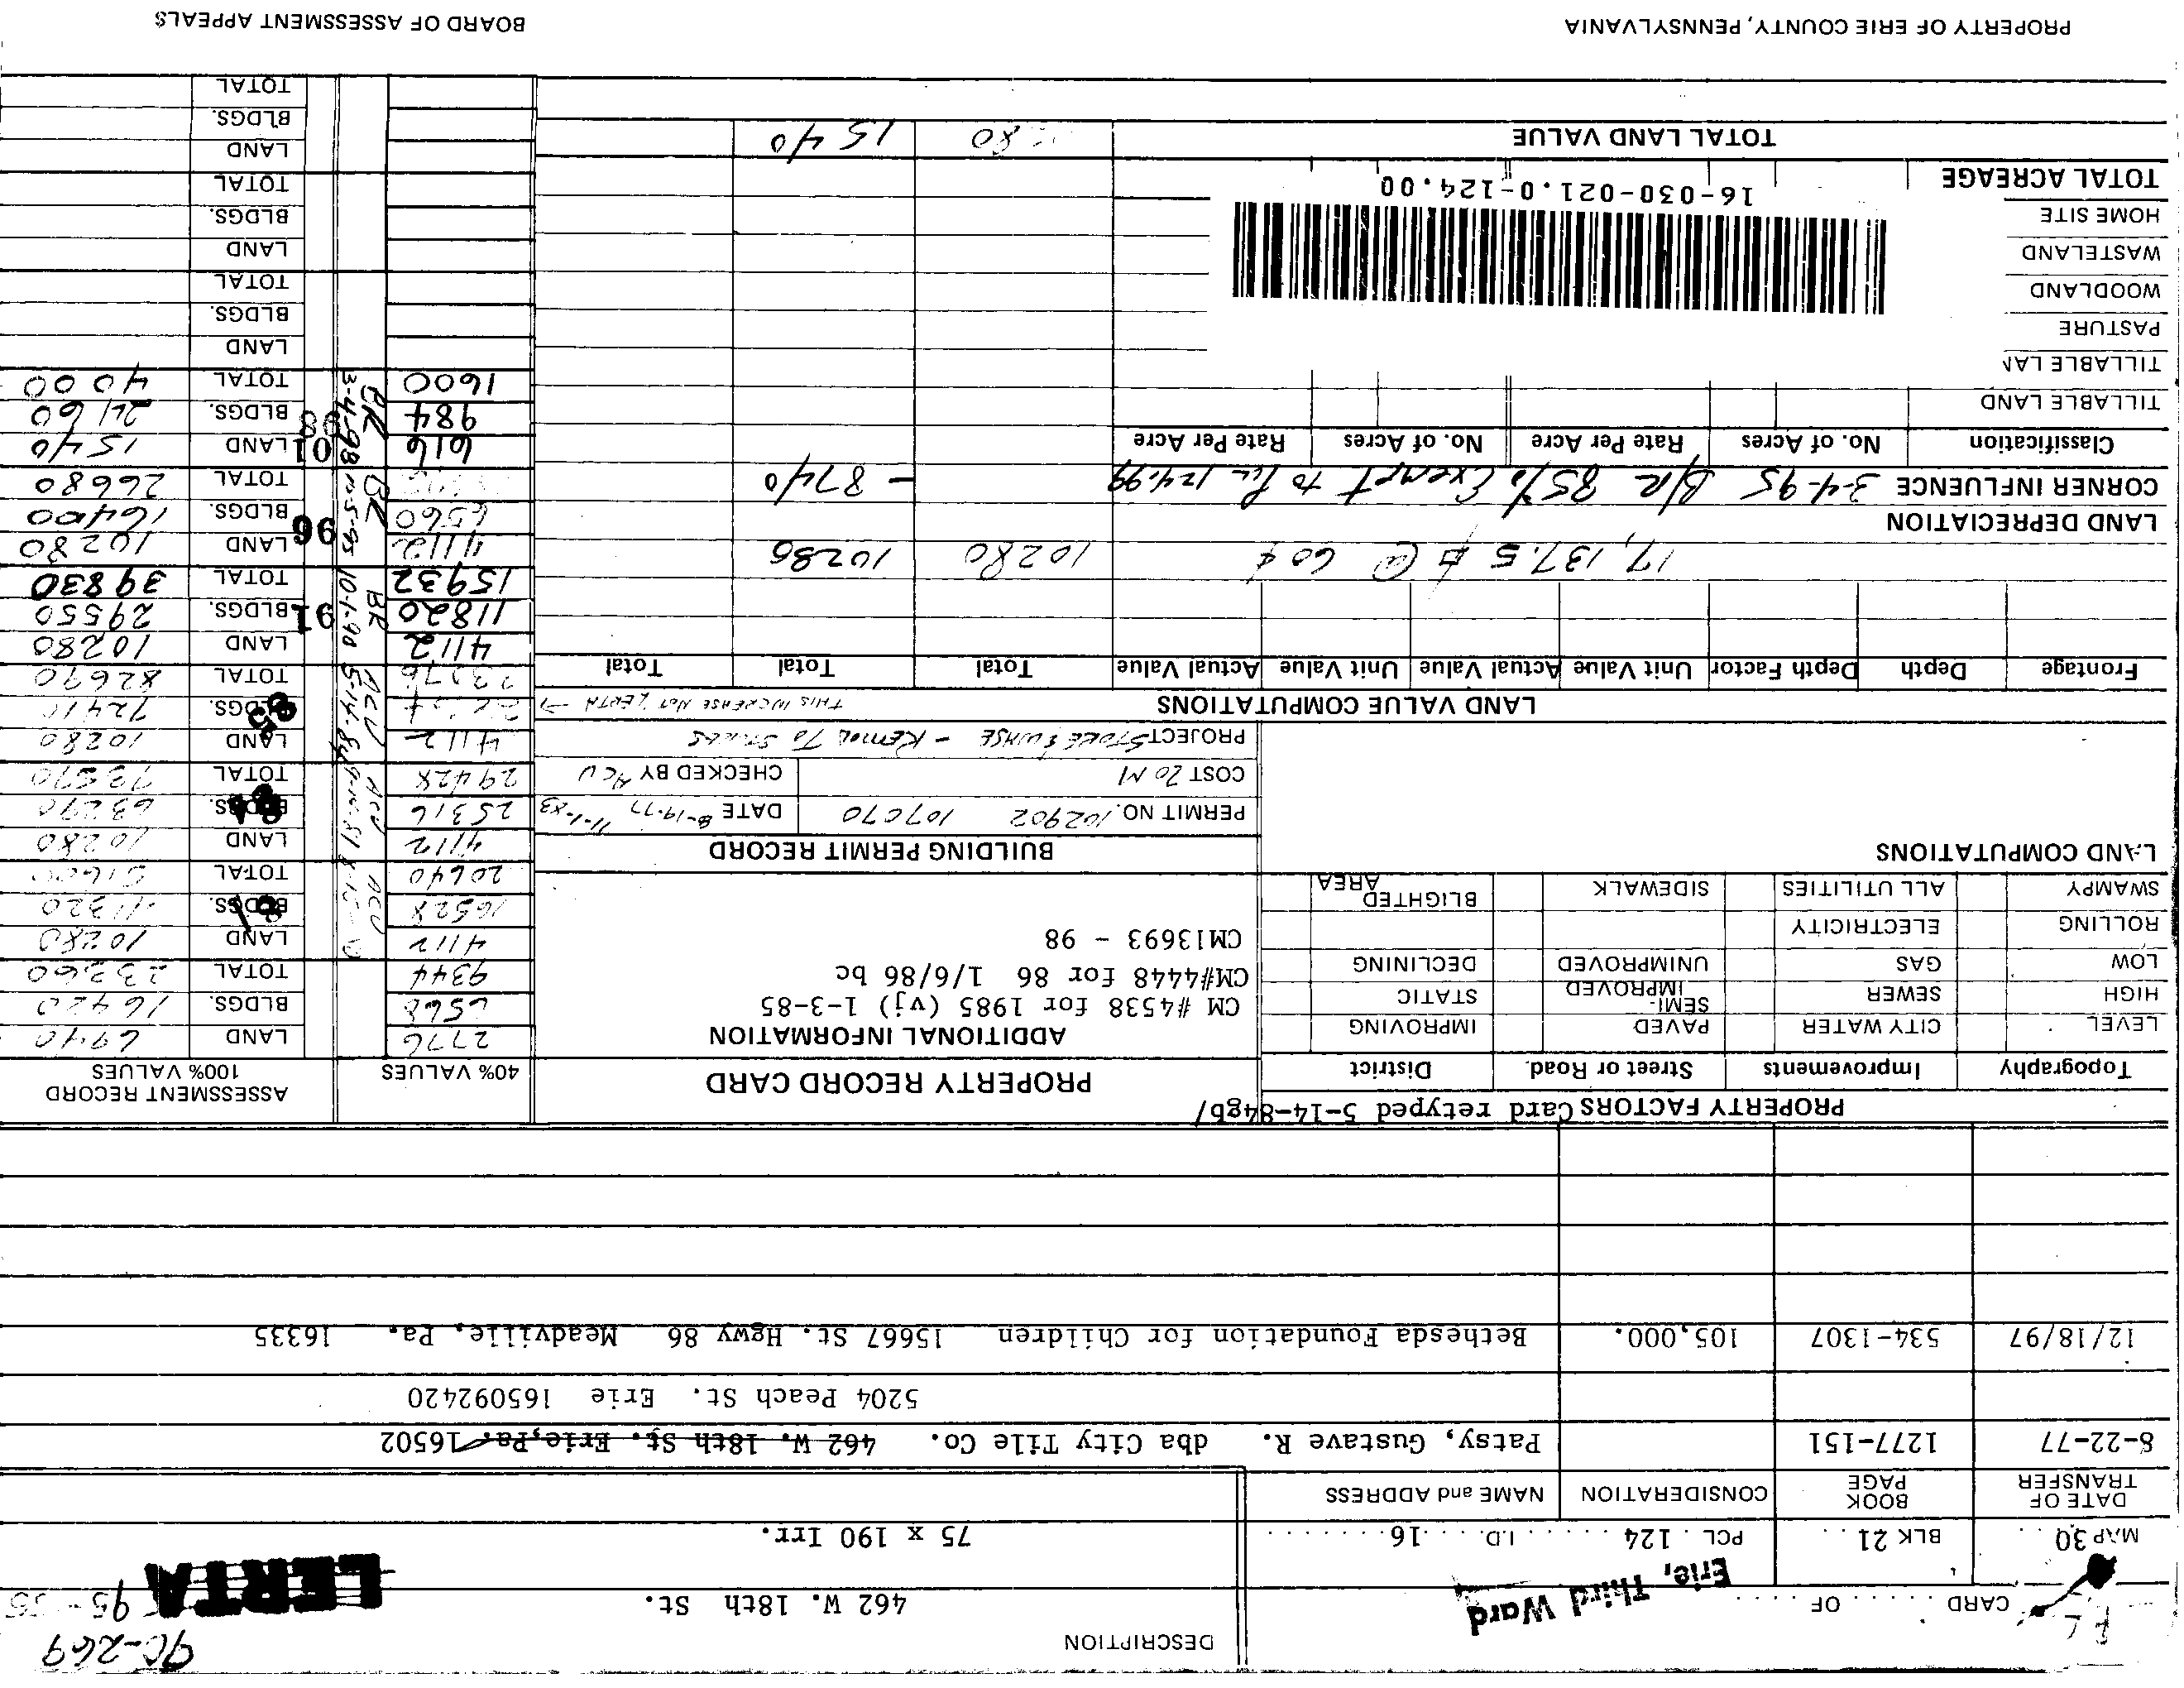 DESCRIPTION
90-269
CARD . . . . . . OF . . . . .
Erie, Third Ward
462 W. 18th St.
LERTA
MAP 30 . . BLK 21 . . PCL . 124 . . . . . . I.D. . . . 16. . . . . . . .
75 x 190 Irr.
DATE OF TRANSFER
BOOK PAGE
CONSIDERATION
NAME and ADDRESS
8-22-77 1277-151 Patsy, Gustave R. dba City Tile Co. 462 W. 18th St. Erie,Pa. 16502
5204 Peach St. Erie 165092420
12/18/97 534-1307 105,000. Bethesda Foundation for Children 15667 St. Hgwy 86 Meadville, Pa. 16335
PROPERTY FACTORS Card retyped 5-14-84gb/
Topography Improvements Street or Road. District
LEVEL CITY WATER PAVED IMPROVING
HIGH SEWER SEMI-IMPROVED STATIC
LOW GAS UNIMPROVED DECLINING
ROLLING ELECTRICITY
SWAMPY ALL UTILITIES SIDEWALK BLIGHTED AREA
LAND COMPUTATIONS
PROPERTY RECORD CARD
ADDITIONAL INFORMATION
CM #4538 for 1985 (vj) 1-3-85
CM#4448 for 86 1/6/86 bc
CM13693 - 98
BUILDING PERMIT RECORD
PERMIT NO. 102902 107070 DATE 8-19-77 11-1-83
COST 20 M CHECKED BY ACU
PROJECT STORE & WHSE - REMOD TO STORES
LAND VALUE COMPUTATIONS THIS INCREASE NOT LERTA →
Frontage Depth Depth Factor Unit Value Actual Value Unit Value Actual Value Total Total Total
17,137.5 @ 60¢ 10280 10280
LAND DEPRECIATION
CORNER INFLUENCE 3-4-95 B/R 85% Exempt to Pcl 124.99 - 8740
Classification No. of Acres Rate Per Acre No. of Acres Rate Per Acre
TILLABLE LAND
TILLABLE LAN
PASTURE
WOODLAND
WASTELAND
HOME SITE
TOTAL ACREAGE
16-030-021.0-124.00
TOTAL LAND VALUE 1540
40% VALUES
ASSESSMENT RECORD 100% VALUES
2776 LAND 6940
6568 BLDGS. 16420
9344 TOTAL 23360
4112 LAND 10280
16528 BLDGS.
20640 TOTAL
4112 LAND 10280
25316 BLDGS. 63290
29428 TOTAL 73570
4112 LAND 10280
BLDGS.
TOTAL 82690
4112 LAND 10280
11820 91 BLDGS. 29550
15932 TOTAL 39830
4112 LAND 10280
6560 96 BLDGS. 16400
TOTAL 26680
616 01 LAND 1540
984 98 BLDGS. 2460
1600 TOTAL 4000
LAND
BLDGS.
TOTAL
LAND
BLDGS.
TOTAL
LAND
BLDGS.
TOTAL
ACU 5-14-84
BR 10-1-90
BR 10-5-95
BR 3-4-98
PROPERTY OF ERIE COUNTY, PENNSYLVANIA
BOARD OF ASSESSMENT APPEALS